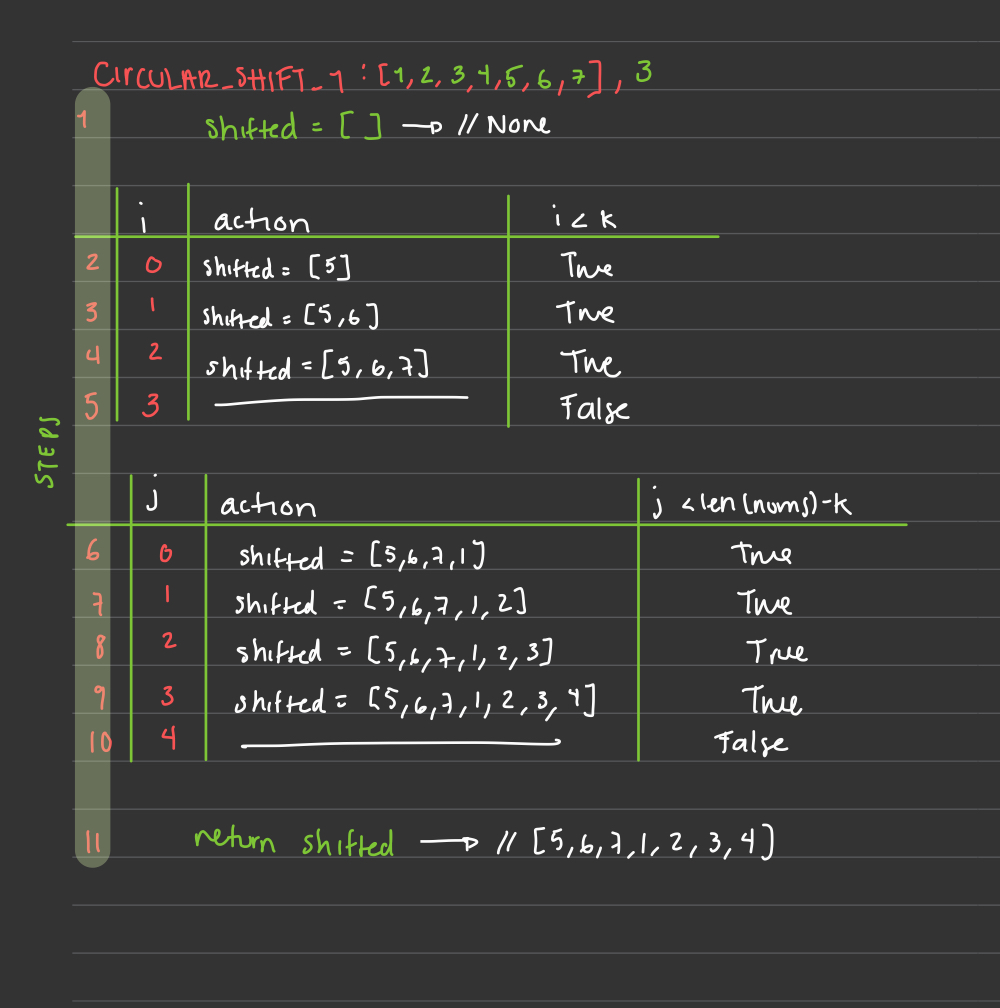 CIRCULAR_SHIFT_1 : [1,2,3,4,5,6,7], 3
1 shifted = [ ] → // None
i action i < k
2 0 shifted = [5] True
3 1 shifted = [5,6] True
4 2 shifted = [5,6,7] True
5 3 False
STEPS
j action j < len(nums)-k
6 0 shifted = [5,6,7,1] True
7 1 shifted = [5,6,7,1,2] True
8 2 shifted = [5,6,7,1,2,3] True
9 3 shifted = [5,6,7,1,2,3,4] True
10 4 False
11 return shifted → // [5,6,7,1,2,3,4]